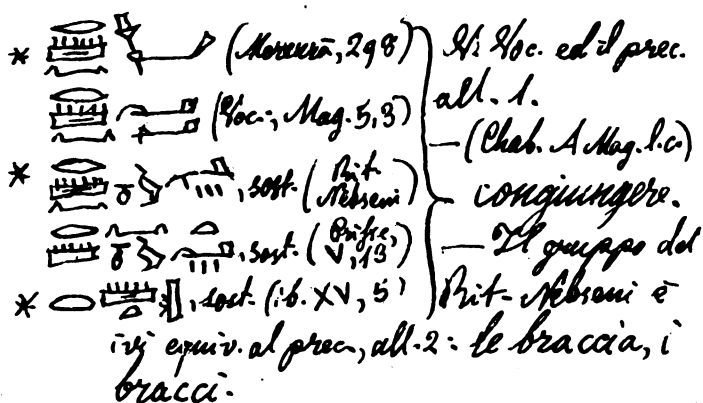 * (Merenrā, 298)
(Voc., Mag. 5,3)
* , sost. (Rit. Nebseni)
, sost. (Prisse, V, 13)
* , sost. (ib. XV, 5)
V. Voc. ed il prec.
all. 1.
— (Chab. A Mag. l.c.)
congiungere.
— Il gruppo del
Rit. Nebseni è
ivi equiv. al prec., all. 2: le braccia, i
bracci.